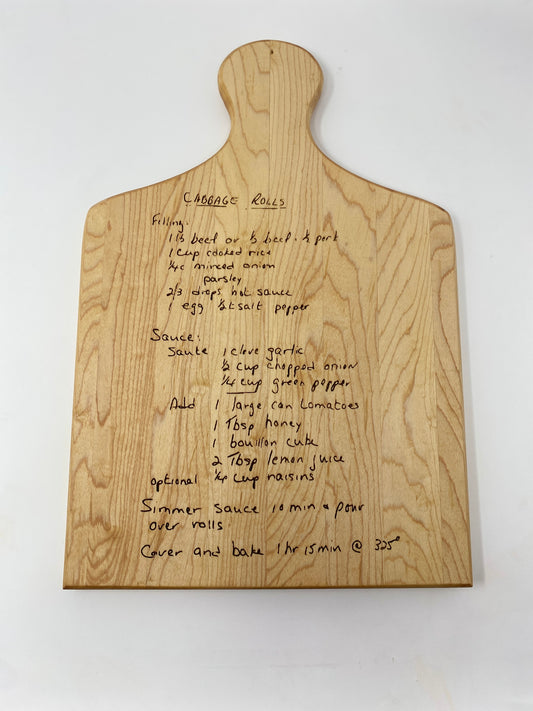 CABBAGE ROLLS
Filling:
1 lb beef or ½ beef. ½ pork
1 cup cooked rice
¼c minced onion
parsley
2/3 drops hot sauce
1 egg ½t salt pepper
Sauce:
Saute 1 clove garlic
½ cup chopped onion
¼ cup green pepper
Add 1 large can tomatoes
1 Tbsp honey
1 bouillon cube
2 Tbsp lemon juice
optional ¼ cup raisins
Simmer sauce 10 min & pour
over rolls
Cover and bake 1 hr 15 min @ 325°